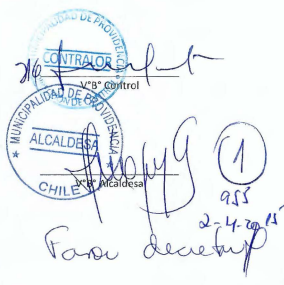 MUNICIPALIDAD DE PROVIDENCIA
CONTRALOR
V°B° Control
MUNICIPALIDAD DE PROVIDENCIA
ALCALDESA
CHILE
V°B° Alcaldesa
1
955
2-4-2015
Favor